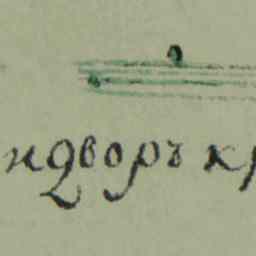 ндворъ кр